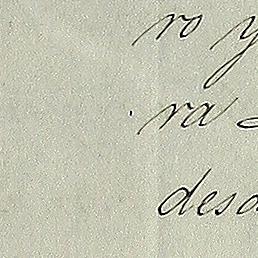 ro y
ra
desd